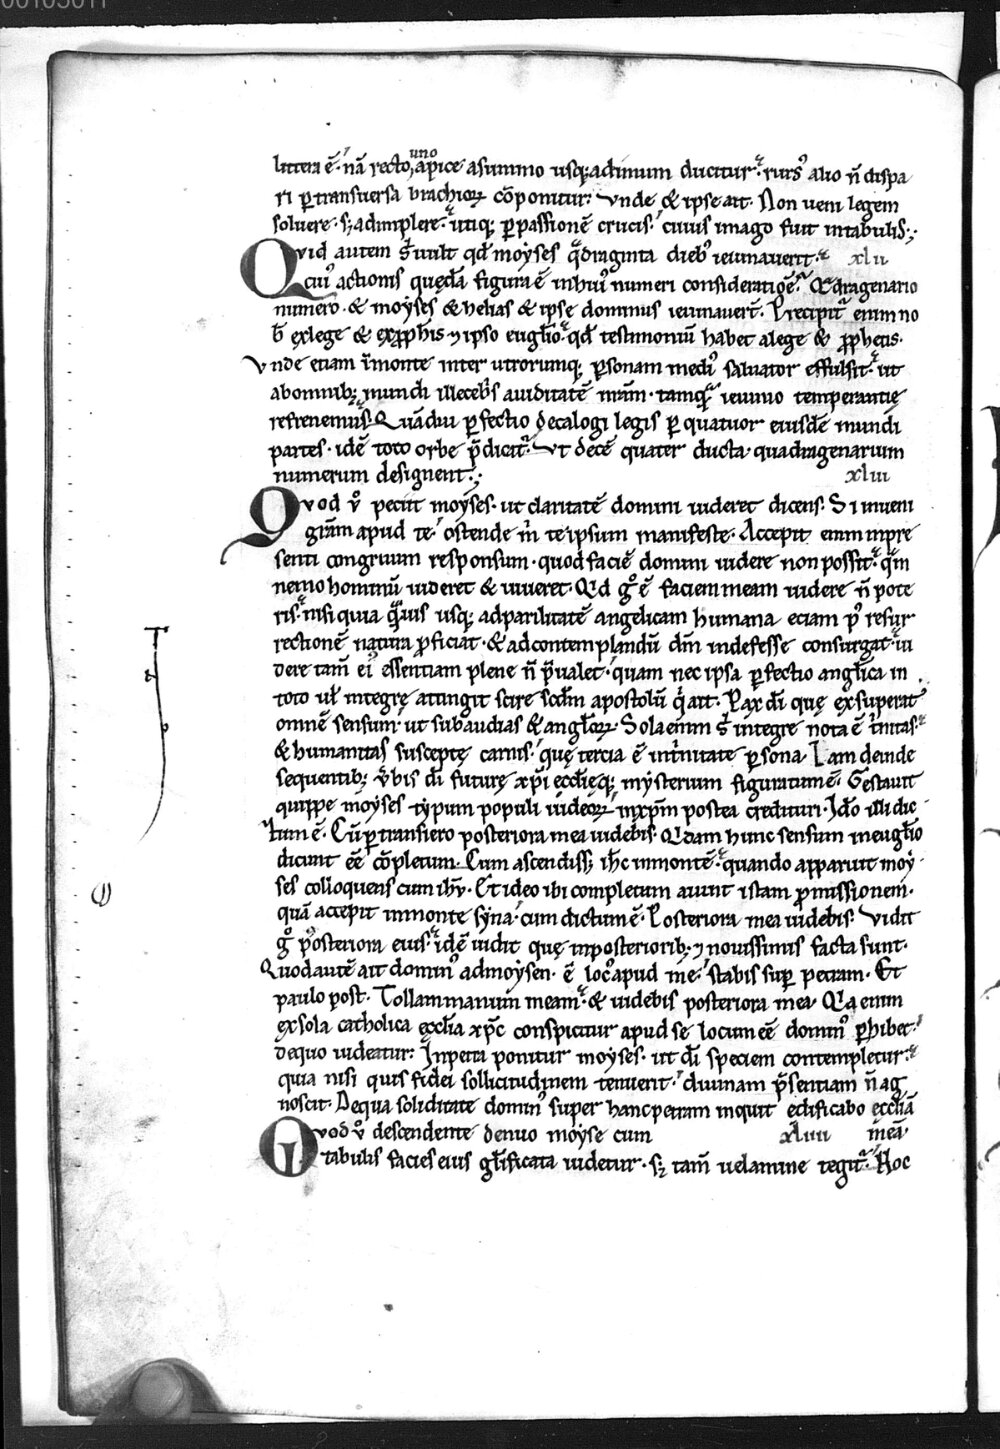 littera ē. nā recto uno apice asummo usq; adimum ducitur. rurs᷒ alio n̄ dispa
ri ꝑ transuersa brachioꝝ cōponitur. Vnde & ipse ait. Non ueni legem
soluere. sꝫ adimplere. utiq; ꝑ passionē crucis. cuius imago fuit intabulis.
Quid autem s̄ uult qd̓ moẏses qͣdraginta dieb᷒ ieiunauerit. xlii
cui᷒ actionis quędā figura ē inhui᷒ numeri consideratiōe. Qͣdragenario
numero. & moẏses & helias & ipse dominus ieiunauer̄. Precipit᷑ enim no
b̄ exlege & exꝓph̄is ⁊ ipso eugl̄io. qd̓ testimoniū habet alege & ꝓphetis.
Vnde etiam īmonte inter utrorumq; ꝑsonam medi᷒ saluator effulsit. ut
abomnib; mundi illeceb̄s auiditatē nr̄am. tamqͣ ieiunio temperantię
refrenemus. Quādiu ꝑfectio decalogi legis ꝑ quatuor eiusdē mundi
partes. idē toto orbe p̄dicit᷑. Vt decē quater ducta. quadragenarium
numerum designent. xliii
Quod v̊ petiit moẏses. ut claritatē domini uideret dicens. Si inueni
gr̄am apud te. ostende m̄ te ipsum manifeste. Accepit enim inpre
senti congruum responsum. quod faciē domini uidere non possit. qm̄
nemo hominū uideret & uiueret. Qd̓ g̊ ē faciem meam uidere n̄ pote
ris. nisi quia qͣuis usq; adparilitatē angelicam humana etiam p᷒ resur
rectionē natura ꝓficiat. & adcontemplandū dm̄ indefesse consurgat. ui
dere tam̄ ei᷒ essentiam plene n̄ p̄ualet. quam nec ipsa ꝑfectio angl̄ica in
toto ul̄ integrę attingit scire scdm̄ apostolū qͥ ait. Pax dī quę exsuperat
omnē sensum. ut subaudias & angl̄oꝝ. Sola enim s̄ integre nota ē t̄nitas.
& humanitas susceptę carnis. quę tercia ē int̄nitate ꝑsona. Iam deinde
sequentib; v̄bis dī futurę xp̄i eccl̄ięq; mẏsterium figuratum ē. Gestauit
quippe moẏses tẏpum populi iudeoꝝ inxp̄m postea credituri. Ido̅ illi dic
tum ē. Cū ꝑtransiero posteriora mea uidebis. Qͥdam hunc sensum ineugl̄io
dicunt eē cōpletum. Cum ascendiss; ih̄c inmontē. quando apparuit moẏ
ses colloquens cum ih̄u. Et ideo ibi completum aiunt istam ꝓmissionem.
quā accepit inmonte sẏna. cum dictum ē. Posteriora mea uidebis. Vidit
g̊ posteriora eius. idē uidit quę inposteriorib; ⁊ nouissimis facta sunt.
Quod autē ait domin᷒ admoẏsen. ē loc᷒ apud me. stabis suꝑ petram. Et
paulo post. Tollam manum meam. & uidebis posteriora mea. Qͥa enim
exsola catholica eccl̄ia xp̄c conspicitur apud se locum eē domin᷒ ꝑhibet.
dequo uideatur. Inpetra ponitur moẏses. ut dī speciem contempletur.
quia nisi quis fidei sollicitudinem tenuerit. diuinam p̄sentiam n̄ ag
noscit. Dequa soliditate domin᷒ super hanc petram inquit edificabo eccl̄iā
Quod v̊ descendente denuo moẏse cum xliiii meā
tabulis facies eius gl̄ificata uidetur. sꝫ tam̄ uelamine tegit᷑. Hoc